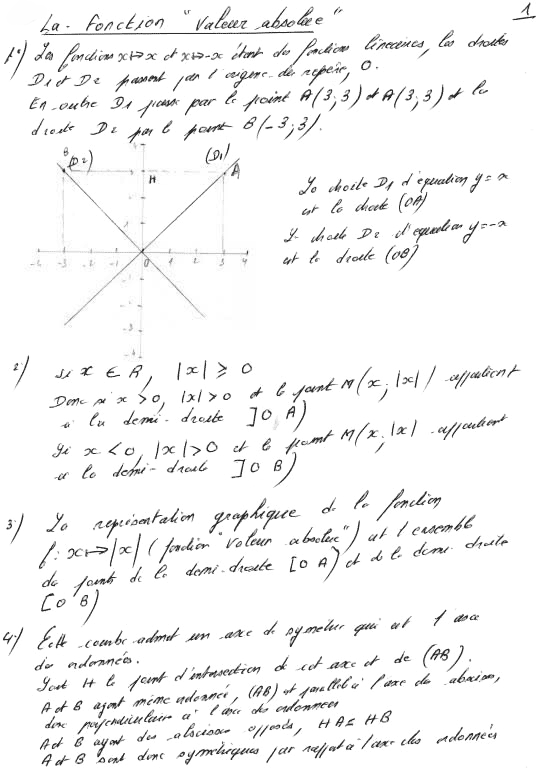 La fonction "Valeur absolue" 1
1°) Les fonctions x↦x et x↦-x étant des fonctions linéaires, les droites
D1 et D2 passent par l'origine du repère, O.
En outre D1 passe par le point A(3;3) et A(3;3) et la
droite D2 par le point B(-3;3).
B (D2) (D1)
H A
La droite D1 d'équation y = x
est la droite (OA)
La droite D2 d'équation y = -x
est la droite (OB)
-4 -3 -2 -1 0 1 2 3 4
2°) Si x ∈ R, |x| ⩾ 0
Donc si x > 0, |x| > 0 et le point M(x; |x|) appartient
à la demi-droite ]O A)
Si x < 0, |x| > 0 et le point M(x; |x| appartient
à la demi-droite ]O B)
3°) La représentation graphique de la fonction
f: x↦|x| (fonction "Valeur absolue") est l'ensemble
des points de la demi-droite [O A) et de la demi-droite
[O B)
4°) Cette courbe admet un axe de symétrie qui est l'axe
des ordonnées.
Soit H le point d'intersection de cet axe et de (AB).
A et B ayant même ordonnée, (AB) est parallèle à l'axe des abscisses,
donc perpendiculaire à l'axe des ordonnées
A et B ayant des abscisses opposées, HA = HB
A et B sont donc symétriques par rapport à l'axe des ordonnées